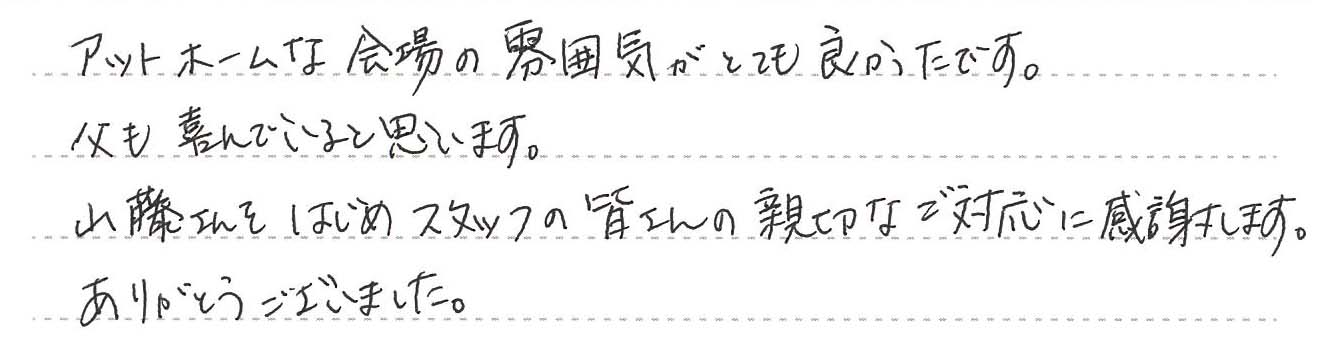 アットホームな会場の雰囲気がとても良かったです。
父も喜んでいると思います。
山藤さんをはじめスタッフの皆さんの親切なご対応に感謝します。
ありがとうございました。